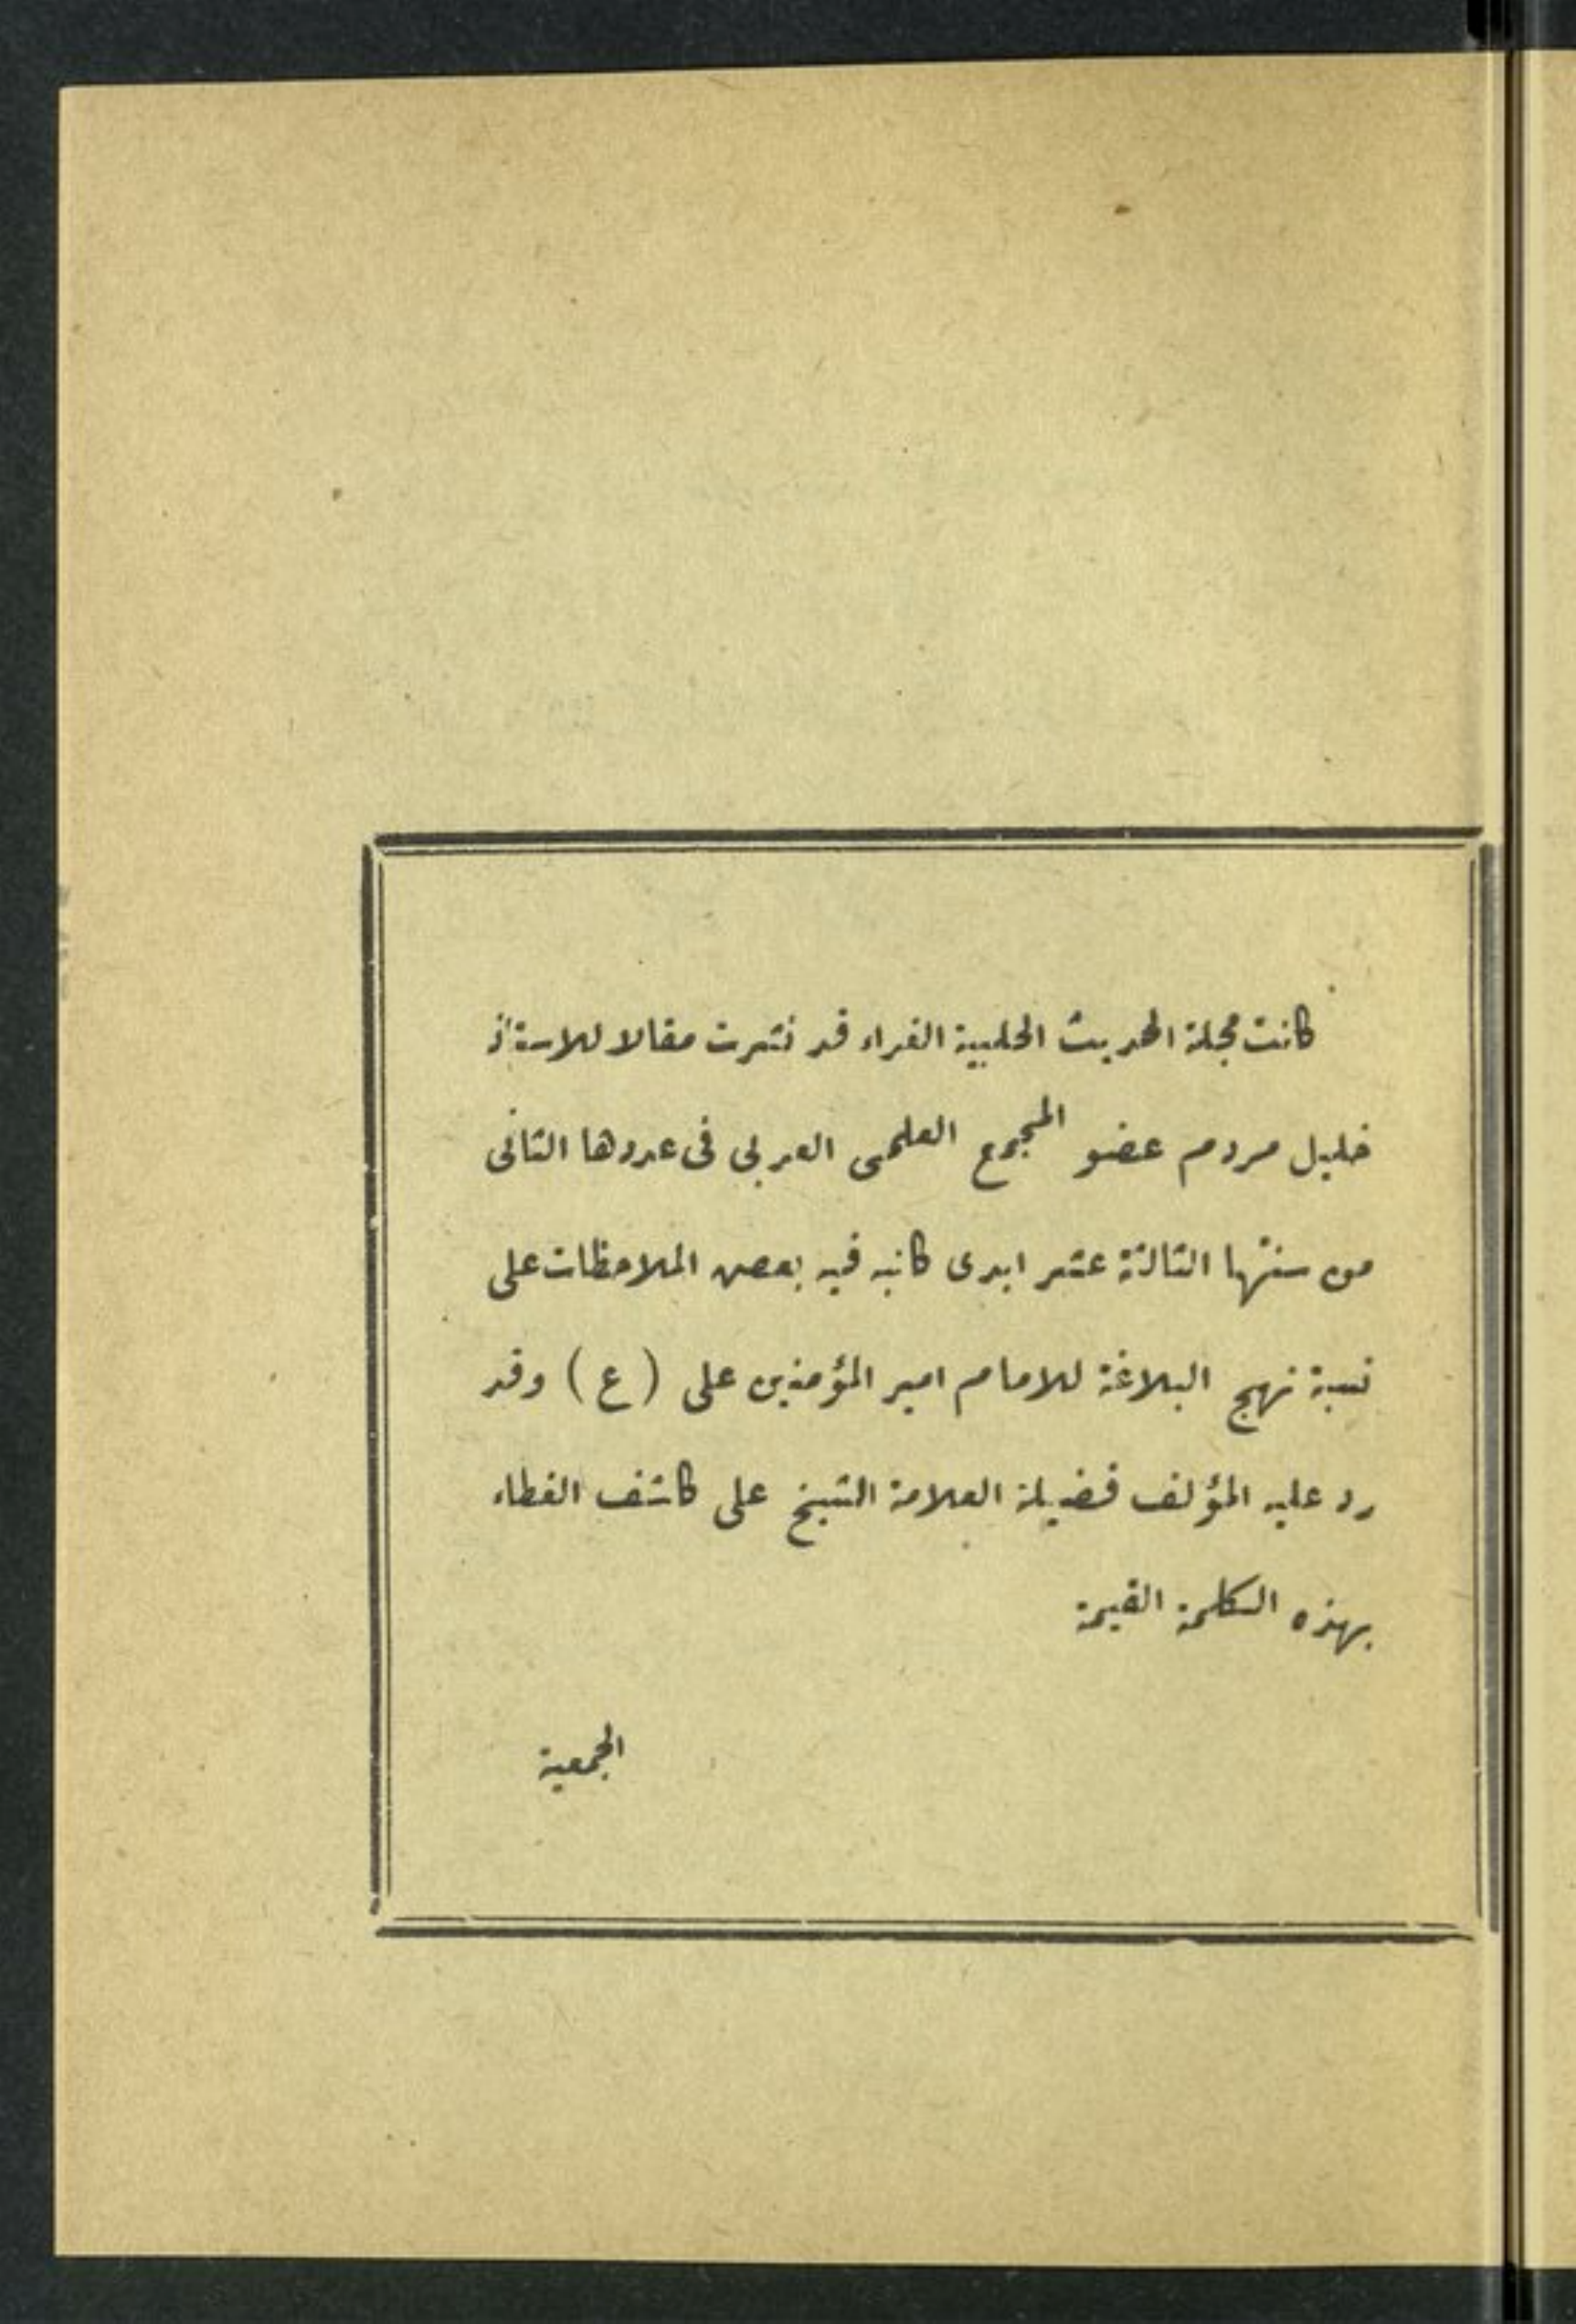 كانت مجلة الحديث الحلبية الغراء قد نشرت مقالا للاستاذ
خليل مردم عضو المجمع العلمى العربى فى عددها الثانى
من سنتها الثالثة عشر ابدى كاتبه فيه بعض الملاحظات على
نسبة نهج البلاغة للامام امير المؤمنين على (ع) وقد
رد عليه المؤلف فضيلة العلامة الشيخ على كاشف الغطاء
بهذه الكلمة القيمة
الجمعية